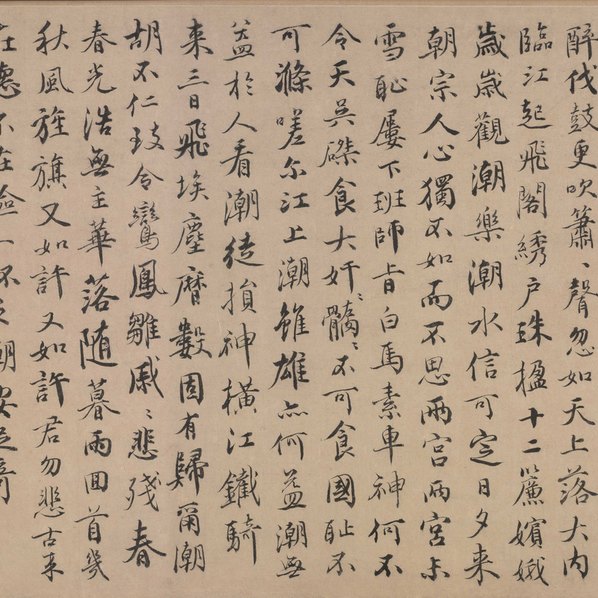 醉伐鼓更吹簫〻聲忽如天上落大内
臨江起飛閣綉户珠楹十二簾嬪娥
歲歲觀潮樂潮水信可定日夕来
朝宗人心獨不如而不思兩宮兩宮未
雪恥屢下班師旨白馬素車神何不
令天吳磔食大奸〻不可食國恥不
可滌嗟尔江上潮雖雄亦何益潮無
益於人看潮徒損神橫江鐵騎
来三日飛埃塵曆數固有歸爾潮
胡不仁致令鸞鳳雛戚〻悲殘春
春光浩無主華落随暮雨回首幾
秋風旌旗又如許又如許君勿悲古来
在德不在險一潮安足奇